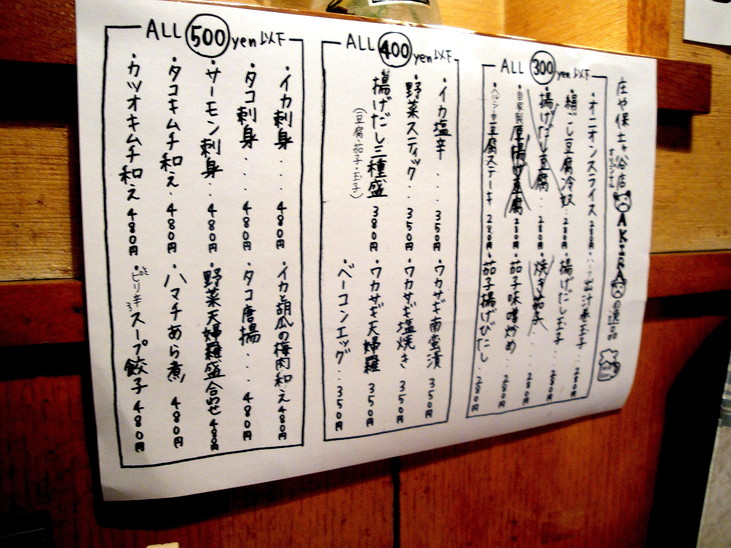 庄や保土ヶ谷店オリジナル AKIRAの逸品
ALL 300 yen以下
・オニオンスライス 280円
・ハーブ出汁巻玉子 280円
・絹ごし豆腐冷奴 280円
・揚げだし玉子 280円
・揚げだし豆腐 280円
・焼き茄子 280円
・自家製厚揚げ豆腐 280円
・茄子味噌炒め 280円
豆腐ステーキ 280円
・茄子揚げびたし 280円
ALL 400 yen以下
・イカ塩辛 350円
・ワカサギ南蛮漬 350円
・野菜スティック 350円
・ワカサギ塩焼き 350円
・揚げだし三種盛 380円
(豆腐・茄子・玉子)
・ワカサギ天婦羅 350円
・ベーコンエッグ 350円
ALL 500 yen以下
・イカ刺身 480円
・イカと胡瓜の梅肉和え 480円
・タコ刺身 480円
・タコ唐揚 480円
・サーモン刺身 480円
・野菜天婦羅盛合わせ 480円
・タコキムチ和え 480円
・ハマチあら煮 480円
・カツオキムチ和え 480円
・ピリ辛スープ餃子 480円